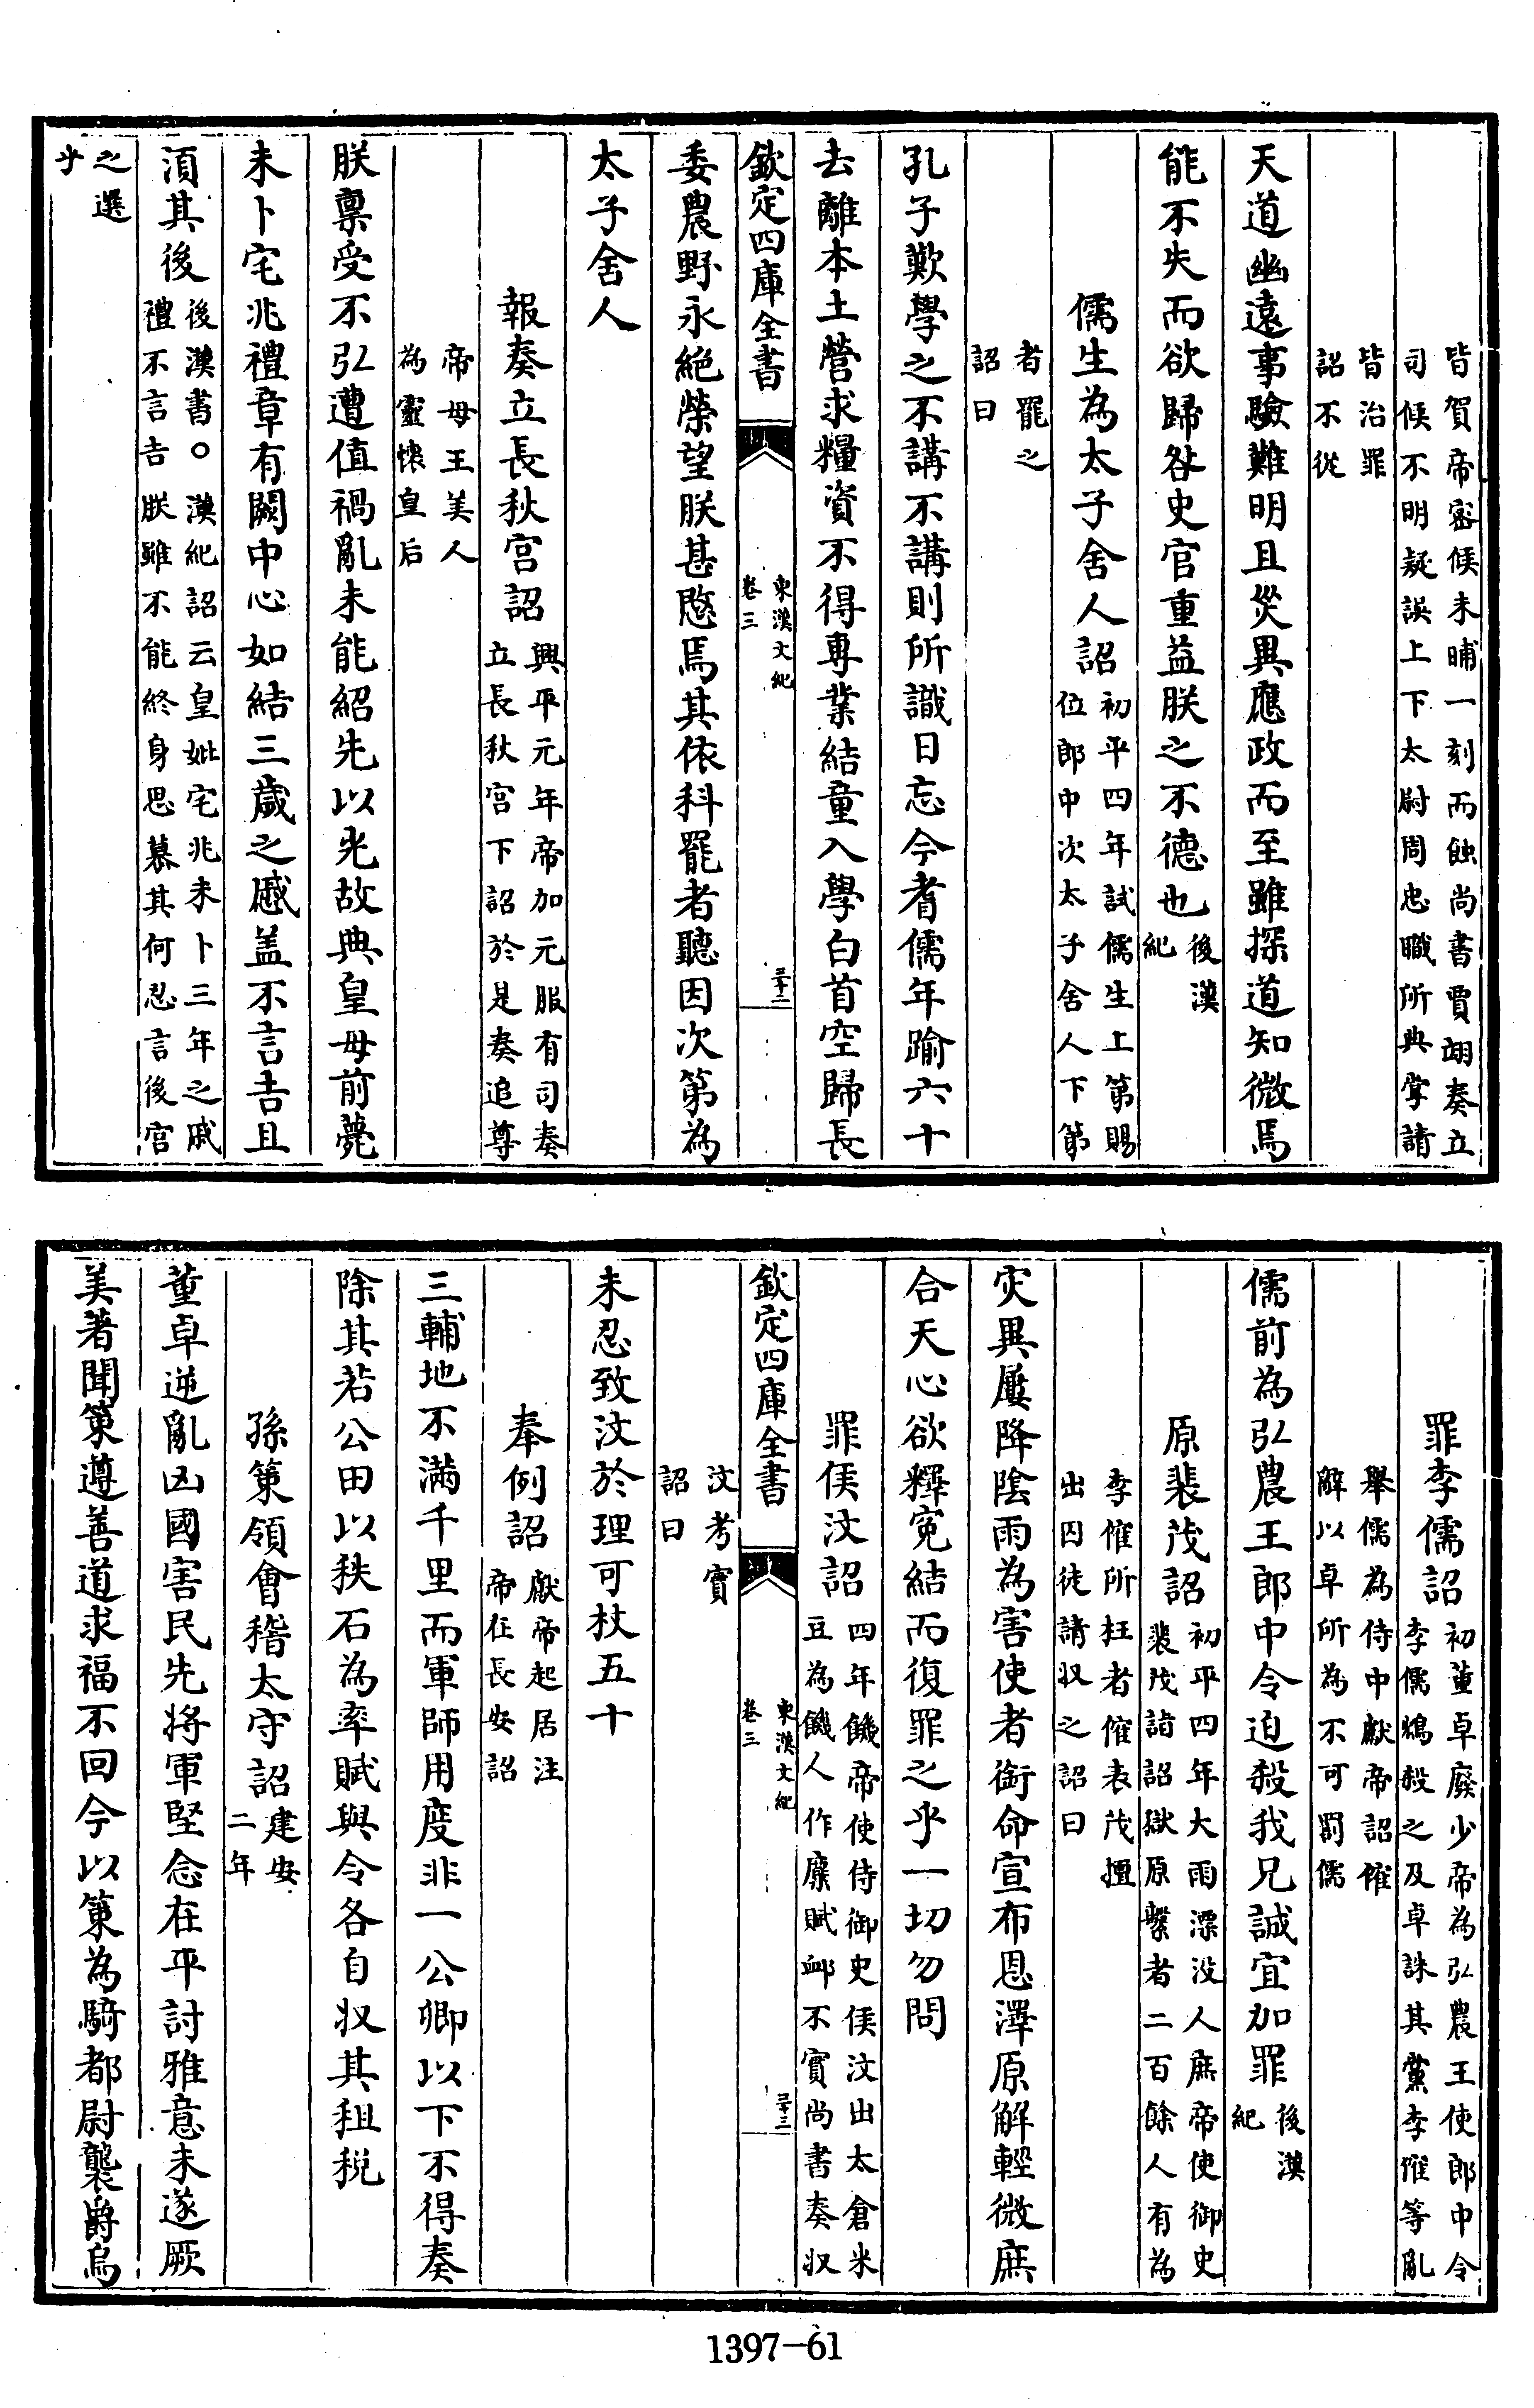 皆賀帝密候未晡一刻而蝕尚書賈詡奏立
司候不明疑誤上下太尉周忠職所典掌請
皆治罪
詔不從
天道幽遠事驗難明且災異應政而至雖探道知微焉
能不失而欲歸咎史官重益朕之不德也後漢
紀
儒生為太子舍人詔初平四年試儒生上第賜
位郎中次太子舍人下第
者罷之
詔曰
孔子歎學之不講不講則所識日忘今耆儒年踰六十
去離本土營求糧資不得專業結童入學白首空歸長
欽定四庫全書
東漢文紀
卷三
三十二
委農野永絶榮望朕甚愍焉其依科罷者聽因次第為
太子舍人
報奏立長秋宫詔興平元年帝加元服有司奏
立長秋宫下詔於是奏追尊
帝母王美人
為靈懷皇后
朕禀受不弘遭值禍亂未能紹先以光故典皇母前薨
未卜宅兆禮章有闕中心如結三歲之慼盖不言吉且
湏其後後漢書○漢紀詔云皇妣宅兆未卜三年之戚
禮不言吉朕雖不能終身思慕其何忍言後宫
之選
乎
罪李儒詔初董卓廢少帝為弘農王使郎中令
李儒鴆殺之及卓誅其黨李傕等亂
舉儒為侍中獻帝詔傕
辭以卓所為不可罰儒
儒前為弘農王郎中令迫殺我兄誠宜加罪後漢
紀
原裴茂詔初平四年大雨漂没人庶帝使御史
裴茂詣詔獄原繫者二百餘人有為
李傕所枉者傕表茂擅
出囚徒請収之詔曰
灾異屢降陰雨為害使者銜命宣布恩澤原解輕微庶
合天心欲釋寃結而復罪之乎一切勿問
罪侯汶詔四年饑帝使侍御史侯汶出太倉米
豆為饑人作糜賦䘏不實尚書奏収
欽定四庫全書
東漢文紀
卷三
三十三
汶考實
詔曰
未忍致汶於理可杖五十
奉例詔獻帝起居注
帝在長安詔
三輔地不滿千里而軍師用度非一公卿以下不得奏
除其若公田以秩石為率賦與令各自収其租税
孫策領會稽太守詔建安
二年
董卓逆亂凶國害民先將軍堅念在平討雅意未遂厥
美著聞策遵善道求福不回今以策為騎都尉襲爵烏
1397-61